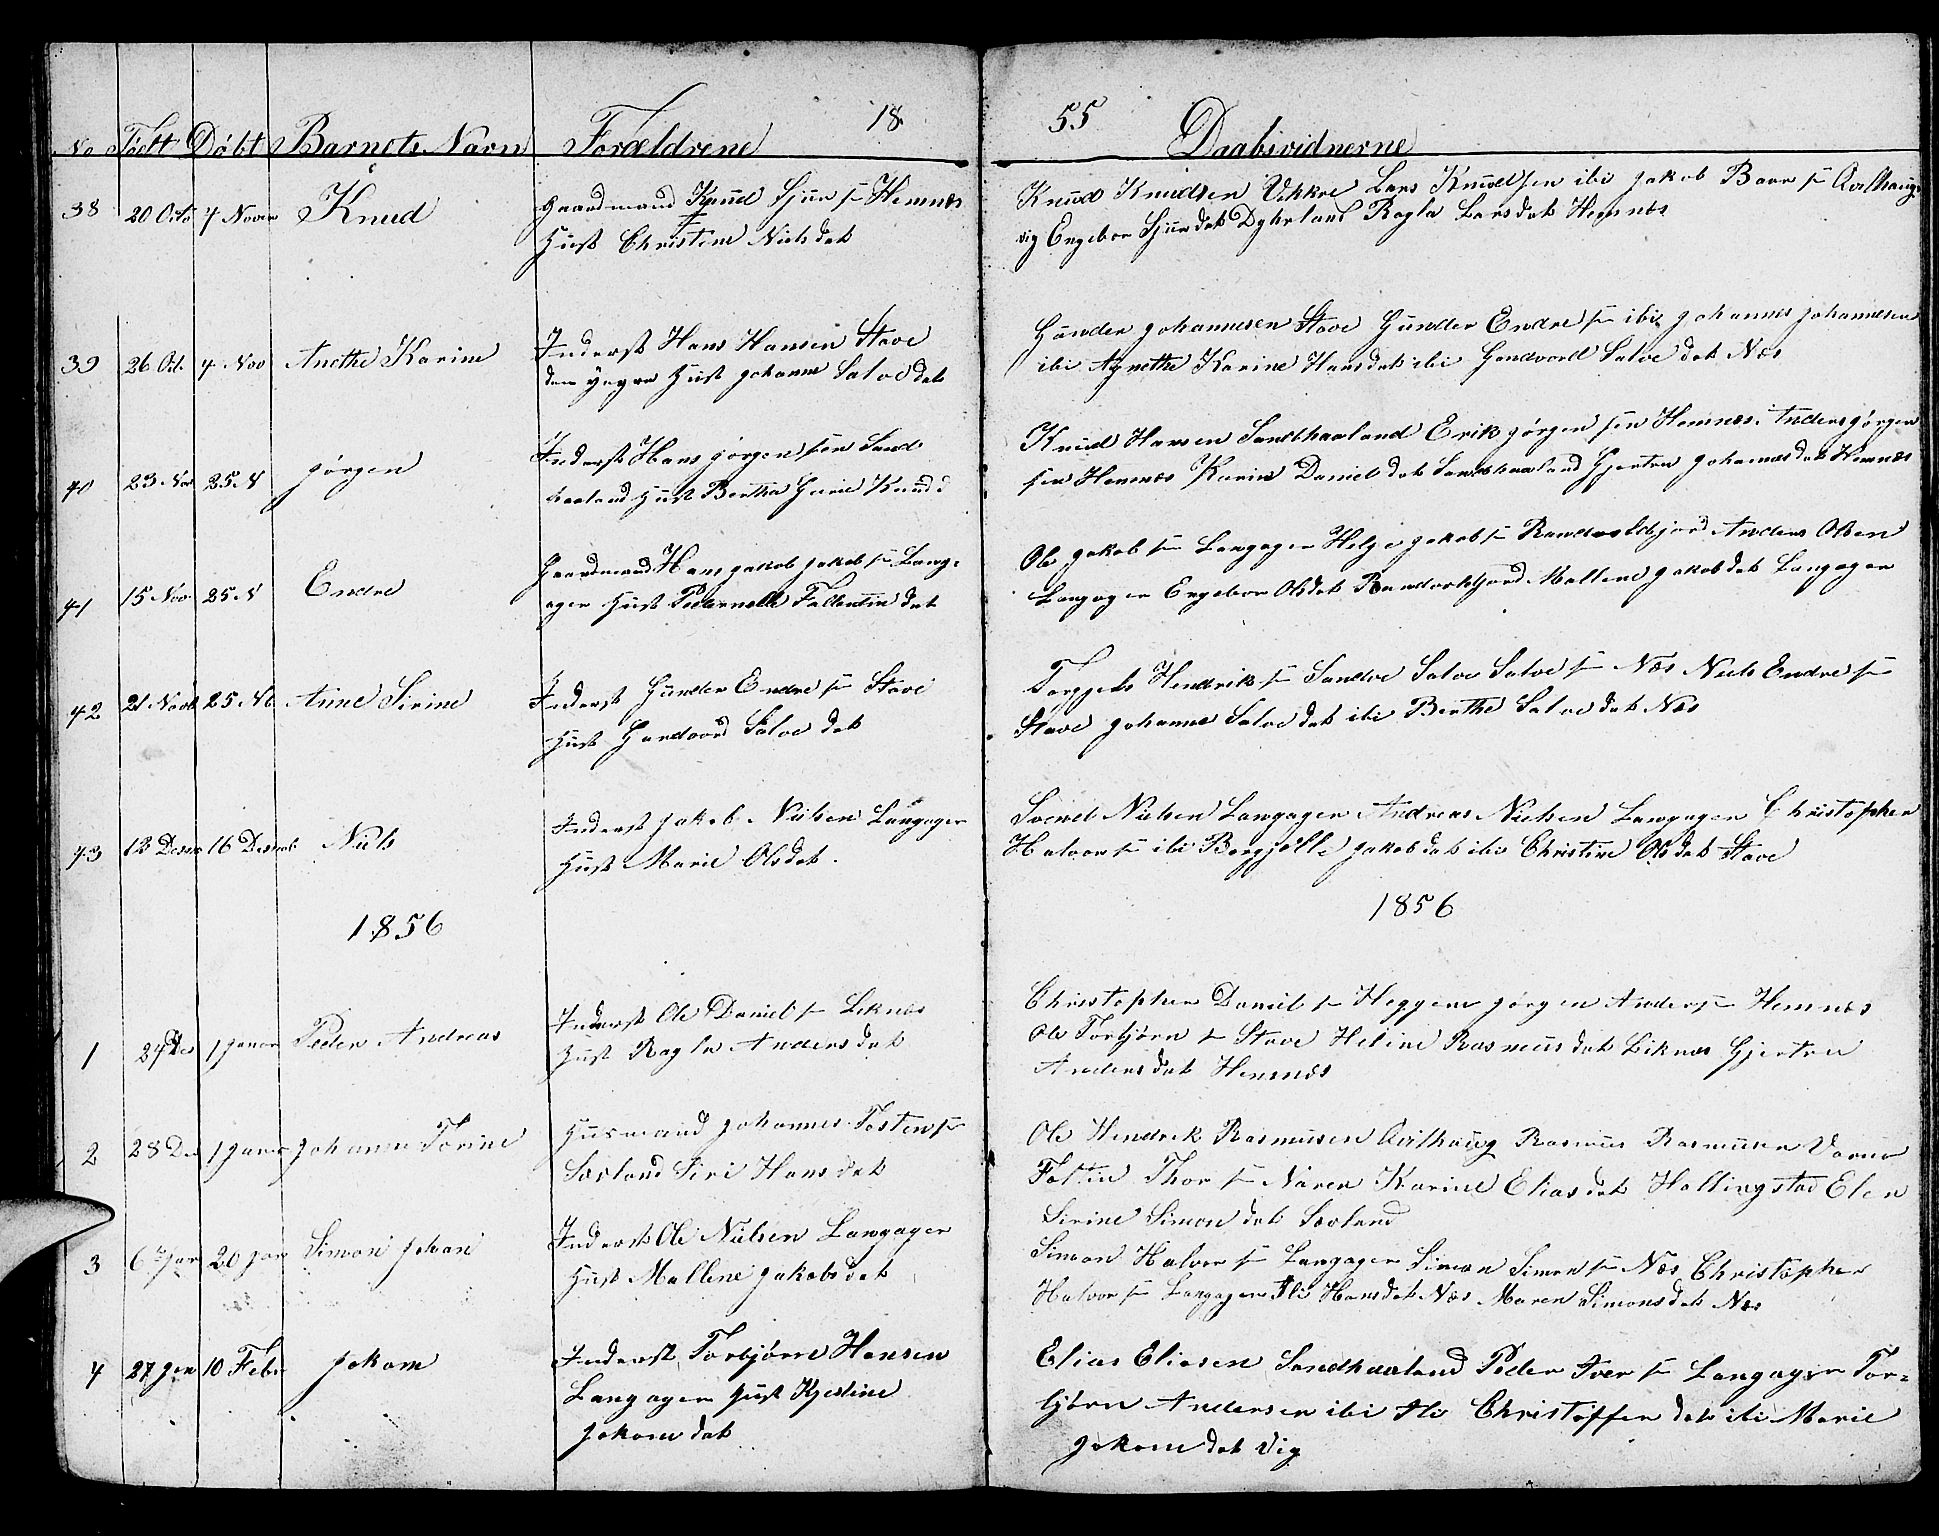 18 55
No Født Døbt Barnets Navn Forældrene Daabsvidnerne
38 20 Octo 4 Novem Knud Gaardmand Knud Sjur s Hemnæs
Hust Christine Nielsdat
Knud Knudsen Vikre Lars Knudsen ibi Jakob Baar s Qvalhaug
vig Engebor Sjursdat Dykeland Ragla Larsdat Hemnæs
39 26 Oct 4 Nov Anethe Karine Inderst Hans Hansen Stave
den yngre Hust Johanne Salvedat
Gunder Johannesen Stave Gunder Endre s ibi Johannes Johannesen
ibi Agnethe Karine Hansdat ibi Gundvord Salve dat Næs
40 23 Nov 25 N Jørgen Inderst Hans Jørgensen Sand
haaland Hust Bertha Gurie Knudsd
Knud Hansen Sandhaaland Erik Jørgensen Hemnæs Anders Jørgen
sen Hemnæs Karine Daniels dat Sandhaaland Gjertru Johannesdat Hemnæs
41 15 Nov 25 N Endre Gaardmand Hans Jakob Jakob s Lang
ager Hust Pedernelle Fallentin dat
Ole Jakob s Langager Helge Jakob s Randvekkjord Anders Olsen
Langager Engebor Olsdat Randvekkjord Mallene Jakobdat Langager
42 21 Novb 25 Nb Anne Sirine Inderst Gunder Endre s Stave
Hust Gundvord Salve dat
Torggels Hendrik s Sandve Salve Salve s Næs Niels Endre s
Stave Johanne Salvedat ibi Berthe Salvedat Næs
43 12 Decem 16 Decemb Niels Inderst Jakob Nielsen Langager
Hust Marie Olsdat
Svend Nielsen Langager Andreas Nielsen Langager Christopher
Halvor s ibi Borggjelle Jakobdat ibi Christine Olsdat Stave
1856 1856
1 24 Dec 1 Janer Peder Andreas Inderst Ole Daniel s Liknæs
Hust Ragla Andersdat
Christopher Daniel s Heggem Jørgen Anders s Hemnæs
Ole Torbjørn s Stave Heline Rasmusdat Liknæs Gjertru
Andersdat Hemnæs
2 28 Dec 1 Janer Johanne Torine Husmand Johannes Tosten s
Sævland Siri Hansdat
Ole Hendrik Rasmusen Qvalhaug Rasmus Rasmusen Varne
Faltin Thor s Naren Karine Eliasdat Hallingstad Elen
Sirine Simon dat Sævland
3 6 Jan 20 Jan Simon Johan Inderst Ole Nielsen Langager
Hust Mallene Jakobsdat
Simon Halvor s Langager Simon Simon s Næs Christopher
Halvor s Langager Ili Hansdat Næs Maren Simonsdat Næs
4 27 Jan 10 Febr Jokom Inderst Torbjørn Hansen
Langager Hust Kjestine
Jokom dat
Elias Eliesen Sandhaaland Peder Iver s Langager Tor=
bjørn Andersen ibi Ili Christoffer dat ibi Marie
Jokomdat Vig